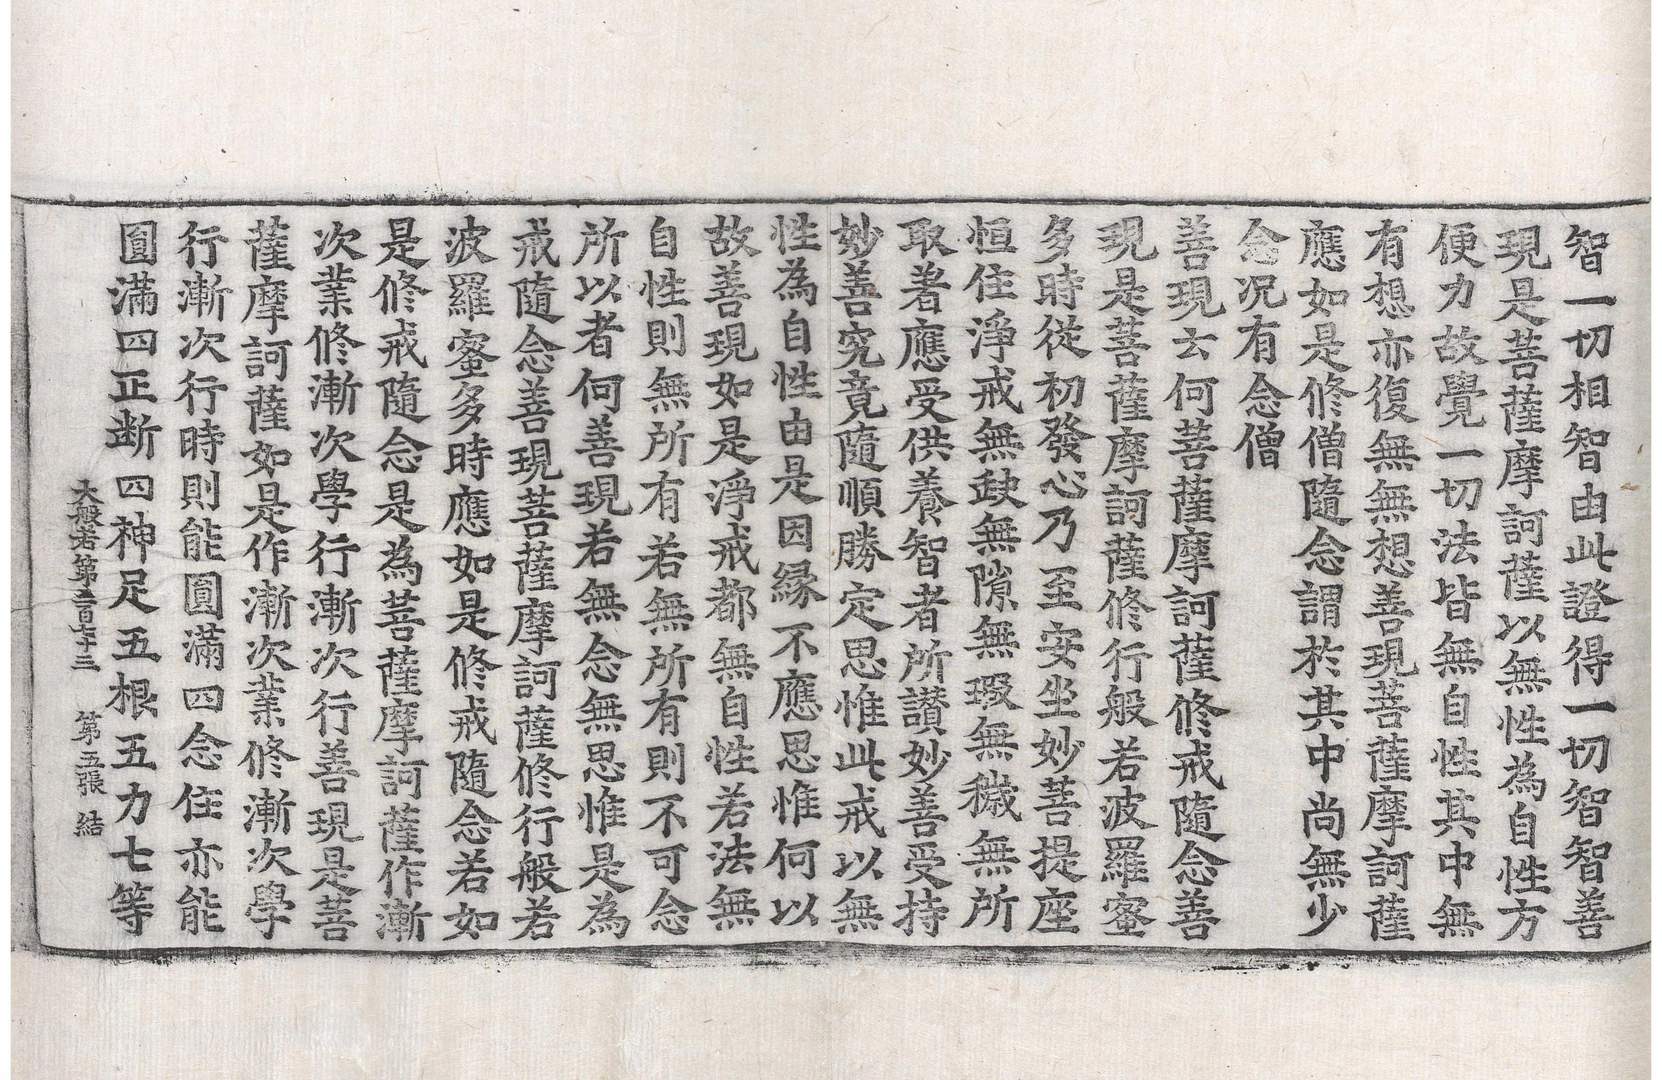 智一切相智由此證得一切智智善
現是菩薩摩訶薩以無性為自性方
便力故覺一切法皆無自性其中無
有想亦復無無想善現菩薩摩訶薩
應如是修僧隨念謂於其中尚無少
念况有念僧
善現云何菩薩摩訶薩修戒隨念善
現是菩薩摩訶薩修行般若波羅蜜
多時從初發心乃至安坐妙菩提座
恒住淨戒無缺無隙無瑕無穢無所
取著應受供養智者所讃妙善受持
妙善究竟隨順勝定思惟此戒以無
性為自性由是因緣不應思惟何以
故善現如是淨戒都無自性若法無
自性則無所有若無所有則不可念
所以者何善現若無念無思惟是為
戒隨念善現菩薩摩訶薩修行般若
波羅蜜多時應如是修戒隨念若如
是修戒隨念是為菩薩摩訶薩作漸
次業修漸次學行漸次行善現是菩
薩摩訶薩如是作漸次業修漸次學
行漸次行時則能圓滿四念住亦能
圓滿四正断四神足五根五力七等
大般若第三百七十三 第五張 結